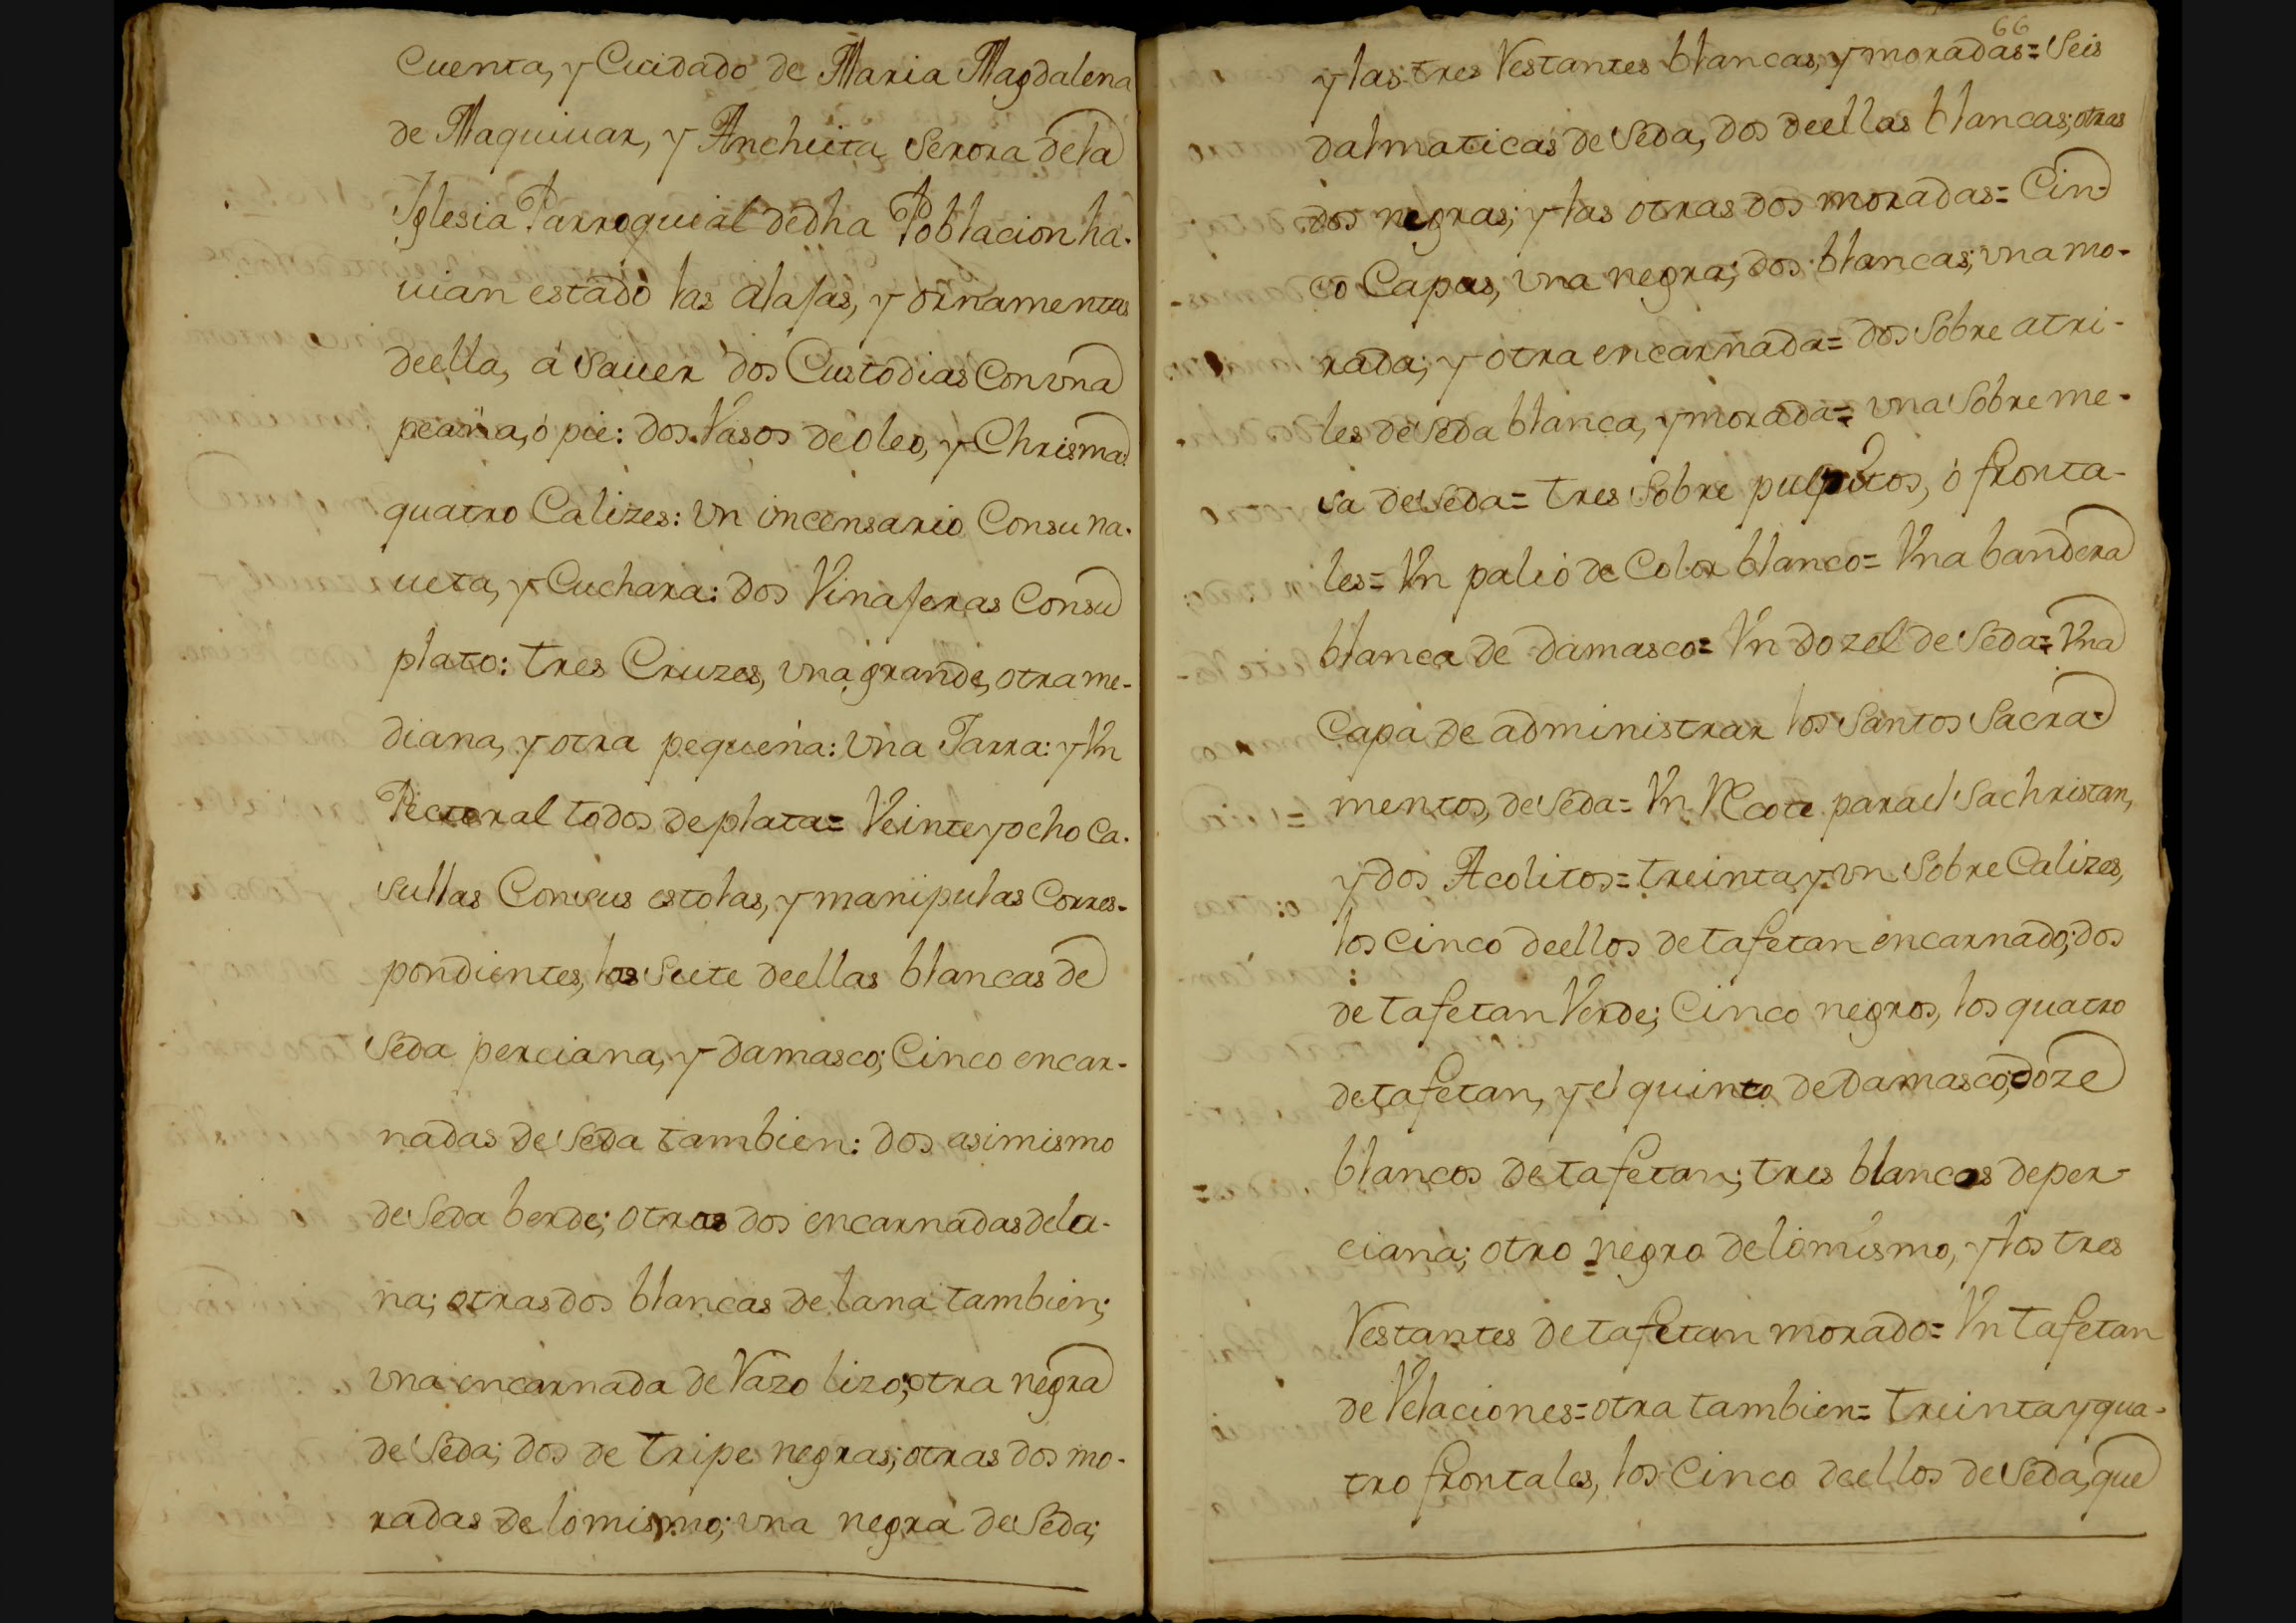 Cuenta, y Cuidado de Maria Magdalena
de Maquiuar, y Anchieta Serora dela
Iglesia Parroquial dedha Poblacion ha-
uian estado las alajas, y ornamentos
deella, á sauer dos Custodias Con vna
peana, ó pie: dos Vasos de oleo, y Chrisma:
quatro Calizes: Vn incensario Consu na-
ueta, y Cuchara: dos Vinajeras Consu
plato: tres Cruzes, vna grande, otra me-
diana, y otra pequeña: Vna Jarra: y Vn
Pectoral todos de plata= Veinte y ocho Ca-
sullas Consus estolas, y manipulas Corres-
pondientes, las siete deellas blancas de
Seda perciana, y damasco; Cinco encar-
nadas de Seda tambien: dos asimismo
de Seda berde; otras dos encarnadas dela-
na; otras dos blancas de lana tambien;
vna encarnada de Vazo lizo; otra negra
de Seda; dos de tripe negras; otras dos mo-
radas de lo mismo; vna negra de Seda;
66
y las tres Restantes blancas, y moradas= Seis
dalmaticas de Seda, dos deellas blancas; otras
dos negras; y las otras dos moradas= Cin-
co Capas, vna negra; dos blancas; vna mo-
rada; y otra encarnada= dos Sobre atri-
les de Seda blanca, y morada= vna Sobre me-
sa de Seda= tres Sobre pulpitos, ó fronta-
les= Vn palio de Color blanco= Vna bandera
blanca de damasco= Vn dozel de Seda= Vna
Capa de administrar los Santos Sacra-
mentos, de Seda= Vn Rcote para el Sachristan,
y dos Acolitos= treinta y vn Sobre Calizes,
los cinco deellos de tafetan encarnado; dos
de tafetan Verde; Cinco negros, los quatro
de tafetan, y el quinto de Damasco; doze
blancos de tafetan; tres blancos de per-
ciana; otro negro de lo mismo, y los tres
Restantes de tafetan morado= Vn tafetan
de Velaciones= otra tambien= treinta y qua-
tro frontales, los Cinco deellos de Seda, que